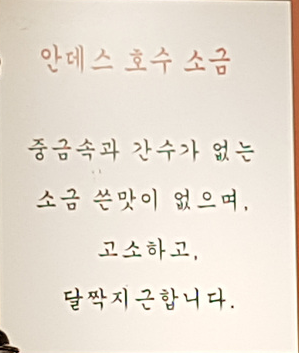 안데스 호수 소금
중금속과 간수가 없는
소금 쓴맛이 없으며,
고소하고,
달짝지근합니다.